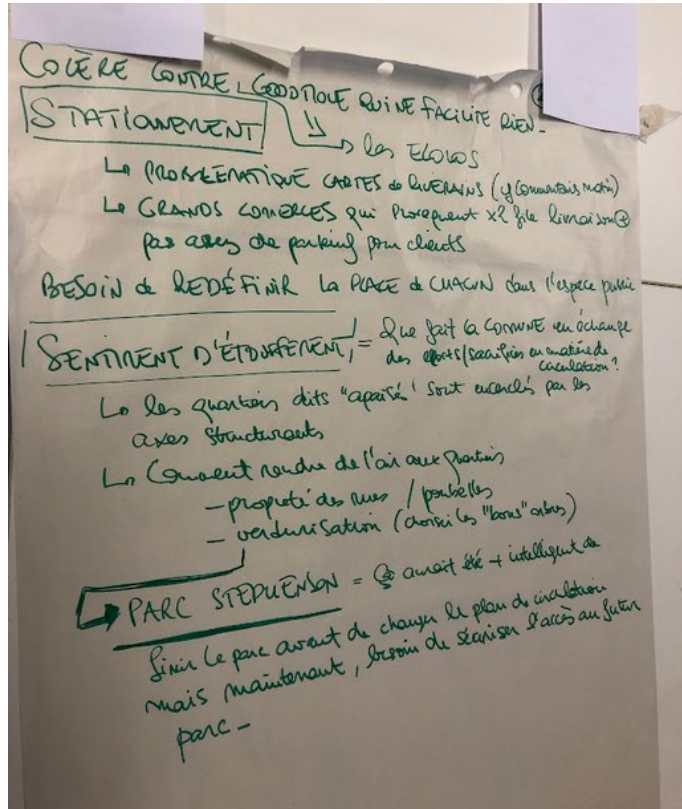 COLÈRE CONTRE GOOD MOVE QUI NE FACILITE RIEN -
STATIONNEMENT
les ECOLOS
↳ PROBLÉMATIQUE CARTES de RIVERAINS (
↳ GRANDS COMERCES qui provoquent x2 file livraison ⊕
pas assez de parking pour clients
BESOIN de REDÉFINIR LA PLACE de CHACUN dans l'espace public
SENTIMENT D'ÉTOUFFEMENT, = Que fait la COMMUNE en échange
des efforts/sacrifices en matière de
circulation ?
↳ les quartiers dits "apaisé" sont encerclés par les
axes structurants
↳ Comment rendre de l'air aux quartiers
- propreté des rues / poubelles
- verdurisation (choisir les "bons" arbres)
PARC STEPHENSON = Ça aurait été + intelligent de
finir le parc avant de changer le plan de circulation
mais maintenant, besoin de sécuriser l'accès au futur
parc -